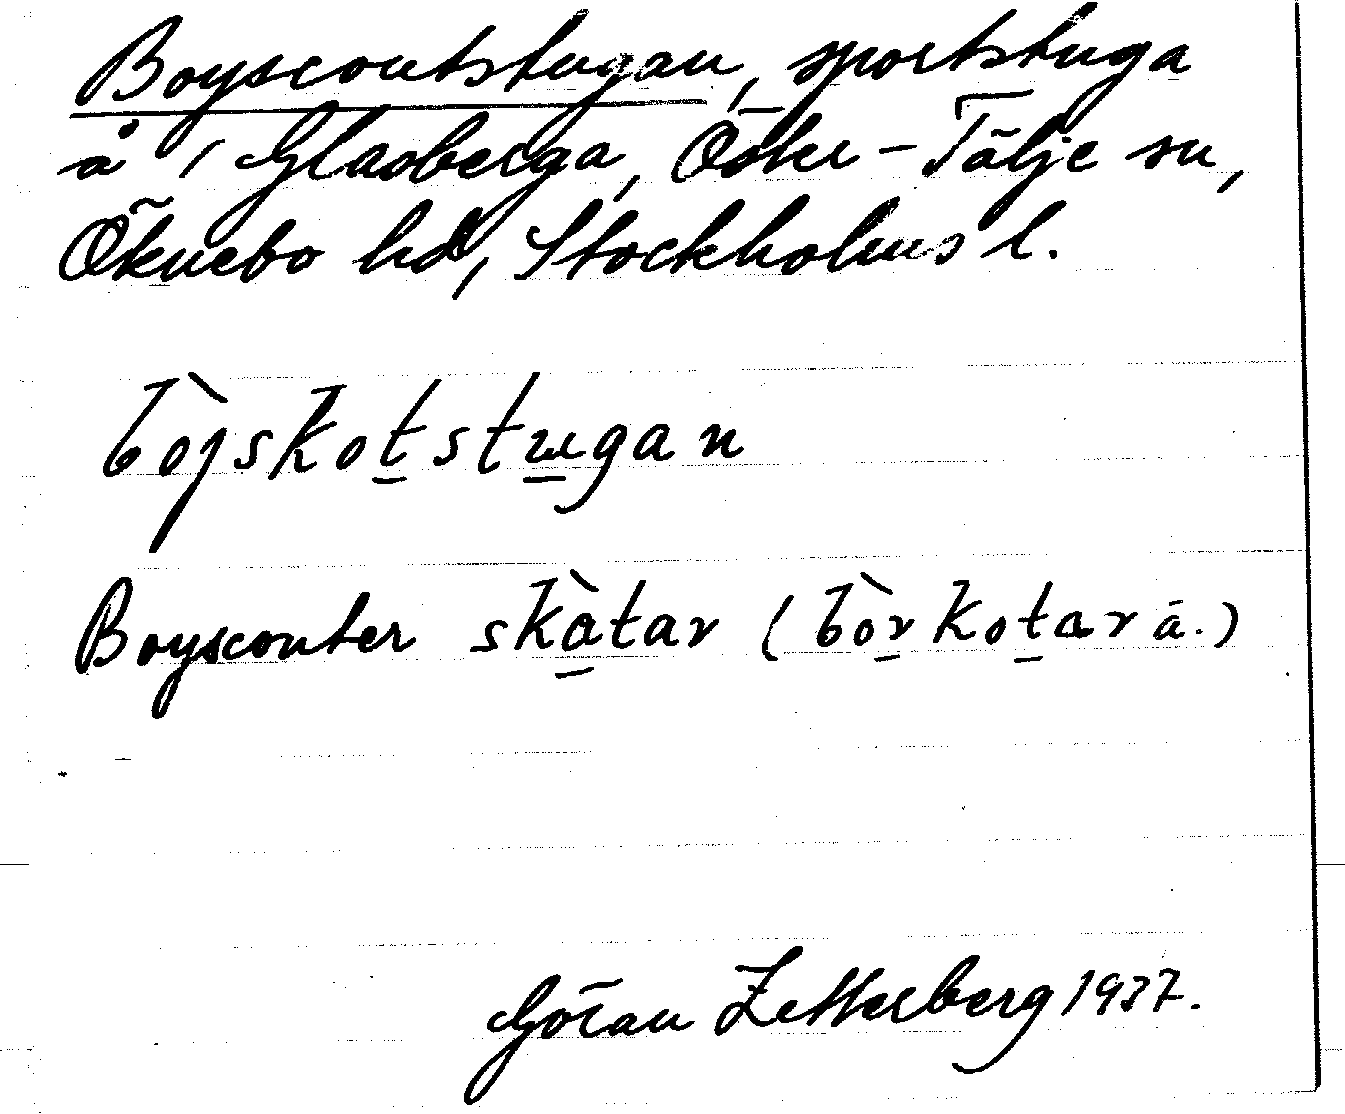 Boyscoutstugan, sportstuga
å / Glasberga, Öster-Tälje sn,
Öknebo hd, Stockholms l.
bòjskotstɯgan
Boyscouter skàtar (bòrkotar ä.)
Göran Zetterberg 1937.